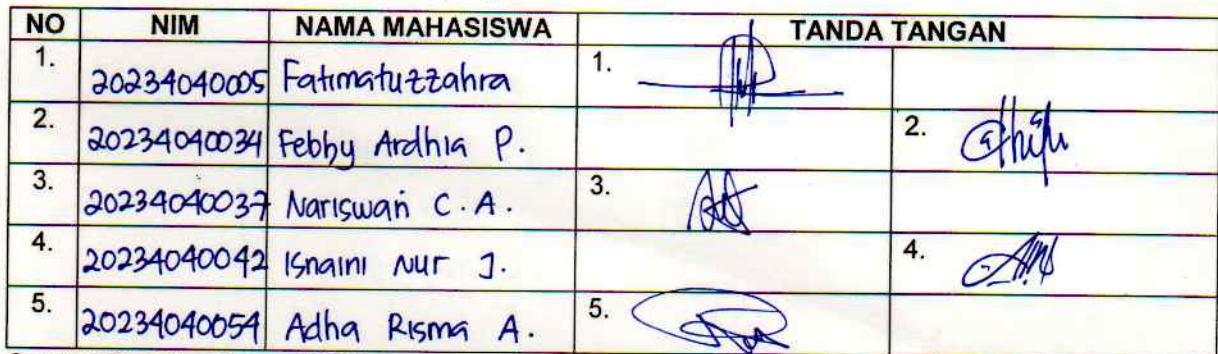 NO NIM NAMA MAHASISWA TANDA TANGAN
1. 20234040005 Fatimatuzzahra 1.
2. 20234040034 Febby Ardhia P. 2.
3. 20234040037 Nariswari C.A. 3.
4. 20234040042 Isnaini Nur J. 4.
5. 20234040054 Adha Risma A. 5.